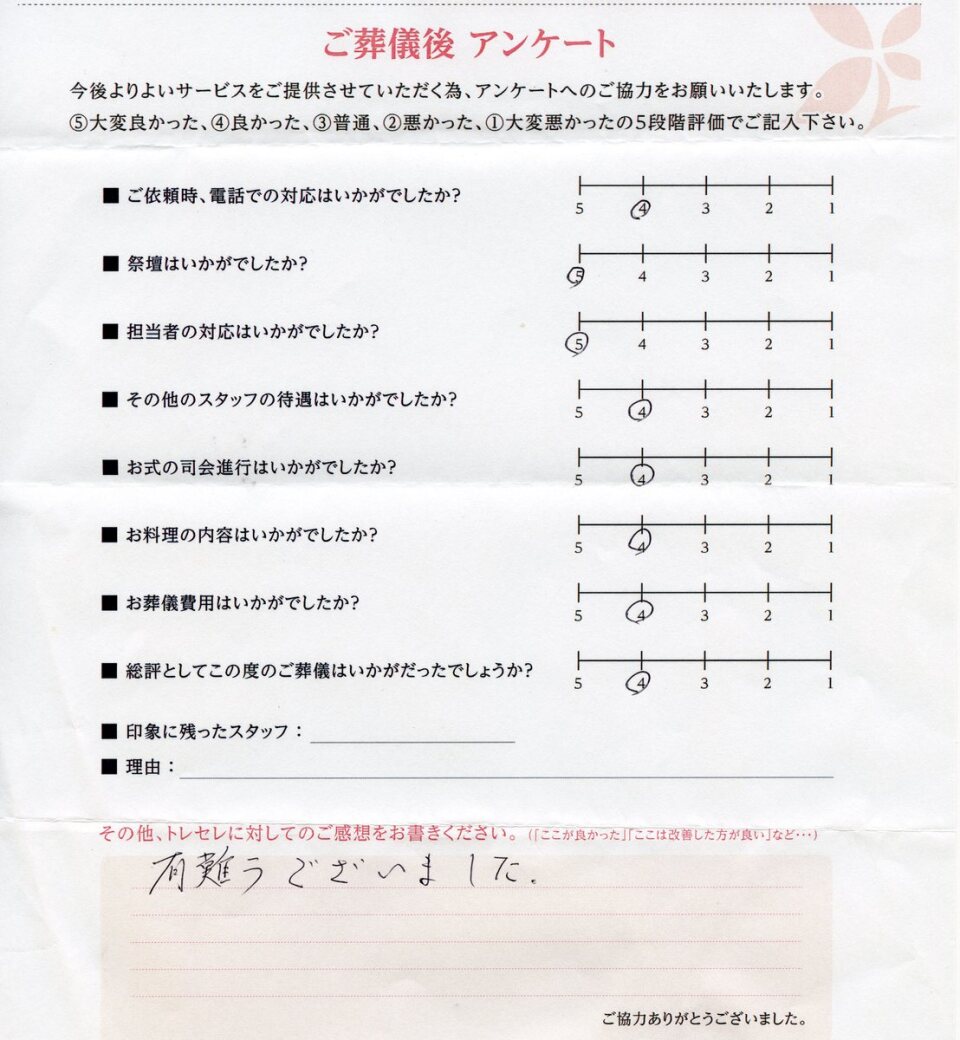 ご葬儀後 アンケート
今後よりよいサービスをご提供させていただく為、アンケートへのご協力をお願いいたします。
⑤大変良かった、④良かった、③普通、②悪かった、①大変悪かったの5段階評価でご記入下さい。
■ ご依頼時、電話での対応はいかがでしたか?
5 4 3 2 1
■ 祭壇はいかがでしたか?
5 4 3 2 1
■ 担当者の対応はいかがでしたか?
5 4 3 2 1
■ その他のスタッフの待遇はいかがでしたか?
5 4 3 2 1
■ お式の司会進行はいかがでしたか?
5 4 3 2 1
■ お料理の内容はいかがでしたか?
5 4 3 2 1
■ お葬儀費用はいかがでしたか?
5 4 3 2 1
■ 総評としてこの度のご葬儀はいかがだったでしょうか?
5 4 3 2 1
■ 印象に残ったスタッフ：
■ 理由：
その他、トレセレに対してのご感想をお書きください。(「ここが良かった」「ここは改善した方が良い」など・・・)
有難うございました.
ご協力ありがとうございました。